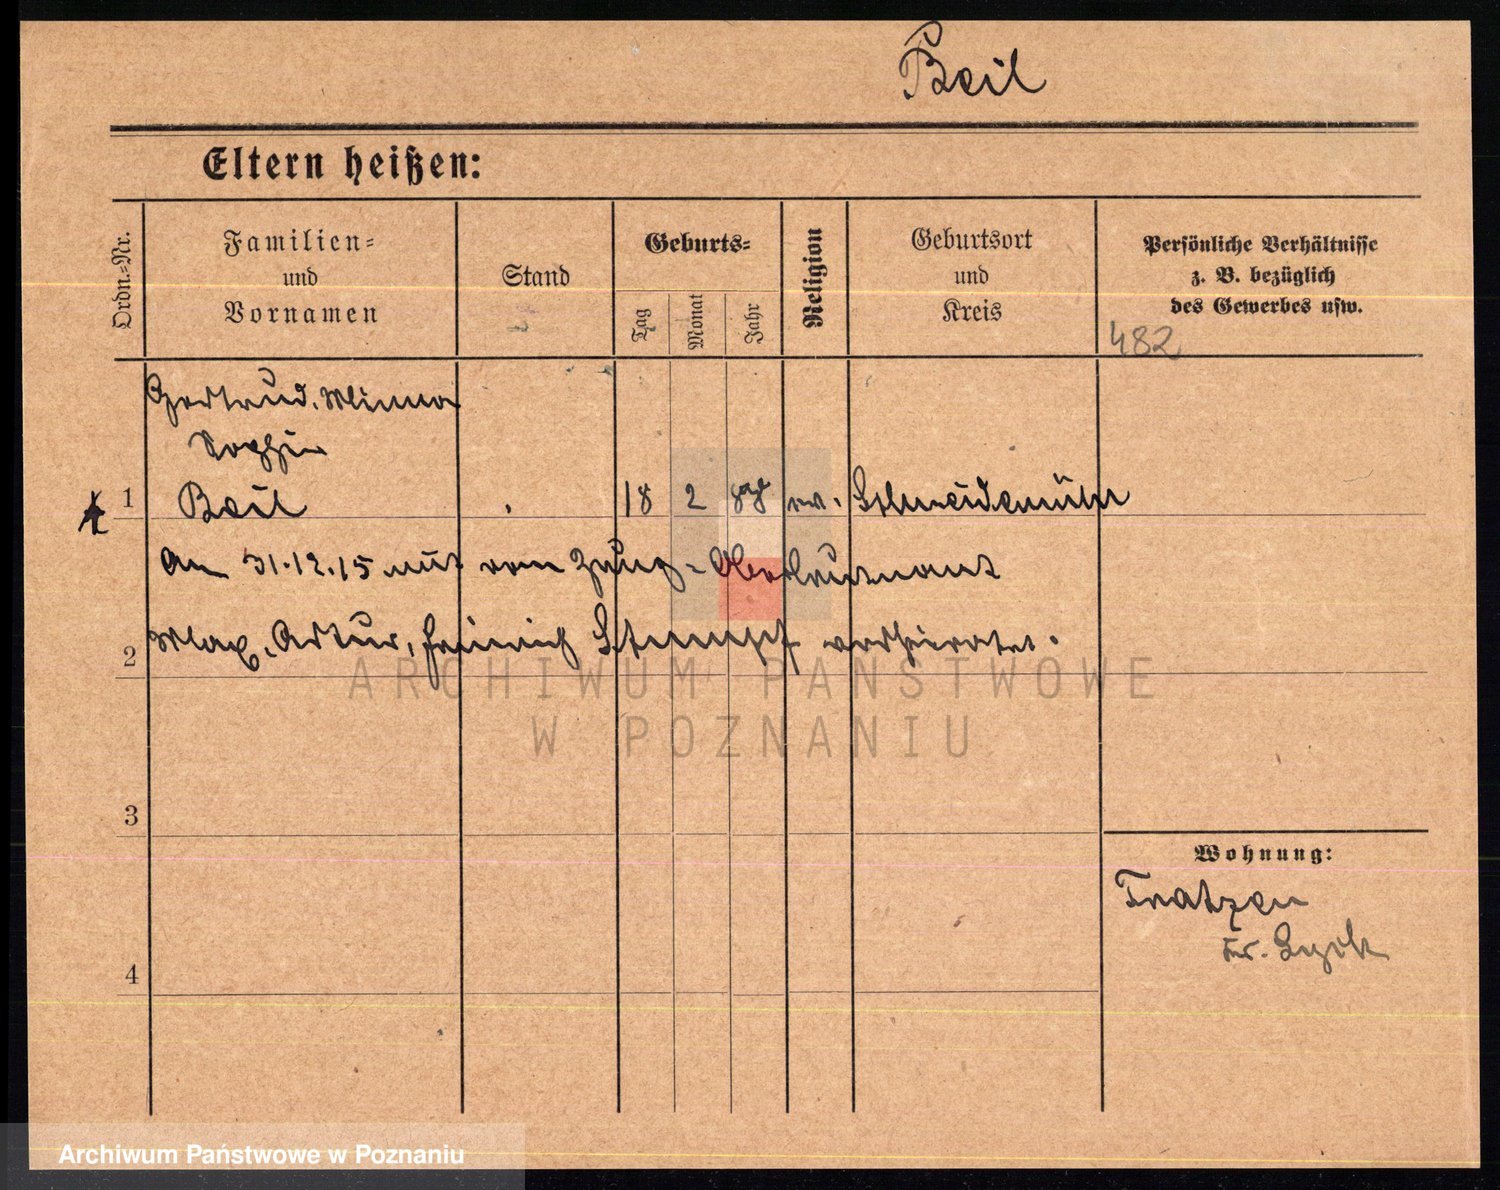 Beil
Eltern heißen:
Ordn.-Nr.
Familien- und Vornamen
Stand
Geburts-
Tag
Monat
Jahr
Religion
Geburtsort und Kreis
Persönliche Verhältnisse
z. B. bezüglich
des Gewerbes usw.
482
Gertrud, Minna
Sophie
1 Beil 18 2 ev. Schneidemühl
am 31.12.15 mit vom Zeug-Oberleutnant
2 Max, Artur, Heinrich Stumpf verheiratet.
ARCHIWUM PAŃSTWOWE
W POZNANIU
3
Wohnung:
Tratzen
Kr. Lyck
4
Archiwum Państwowe w Poznaniu